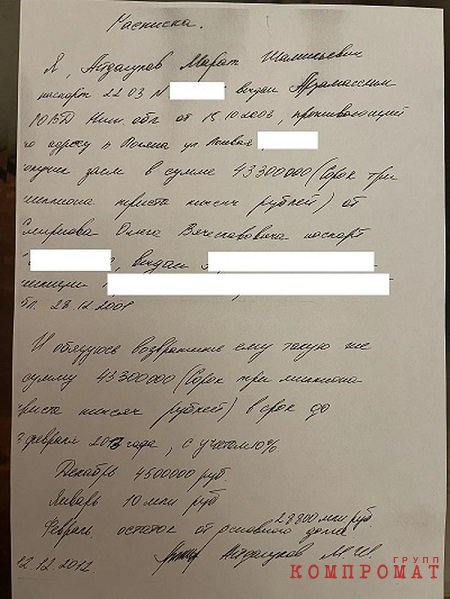 Расписка.
Я, Айдагулов Марат Шамильевич
паспорт 22 03 N выдан Арзамасским
УВД Ниж. обл. от 15.10.2003, проживающий
по адресу п Поляна ул
получил заем в сумме 43300000 (Сорок три
миллиона триста тысяч рублей) от
Смирнова Олега Вячеславовича паспорт
, выдан
28.12.2001
И обязуюсь возвратить ему такую же
сумму 43300000 (Сорок три миллиона
триста тысяч рублей) в срок до
февраля 2013 года, с учетом 10%.
Декабрь 4500000 руб.
Январь 10 млн руб
28800 млн руб
Февраль остаток от основного долга
12.12.2012 М.Ш.
ГРУПП
КОМПРОМАТ